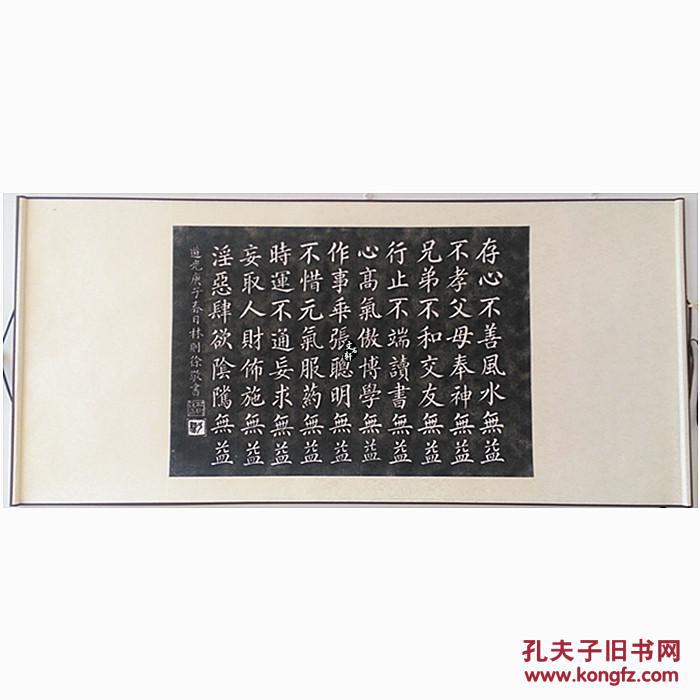 存心不善風水無益
不孝父母奉神無益
兄弟不和交友無益
行止不端讀書無益
心高氣傲博學無益
作事乖張聰明無益
不惜元氣服药無益
時運不通妄求無益
妄取人財佈施無益
淫惡肆欲陰隲無益
道光庚子春日林則徐敬書
孔夫子旧书网
www.kongfz.com